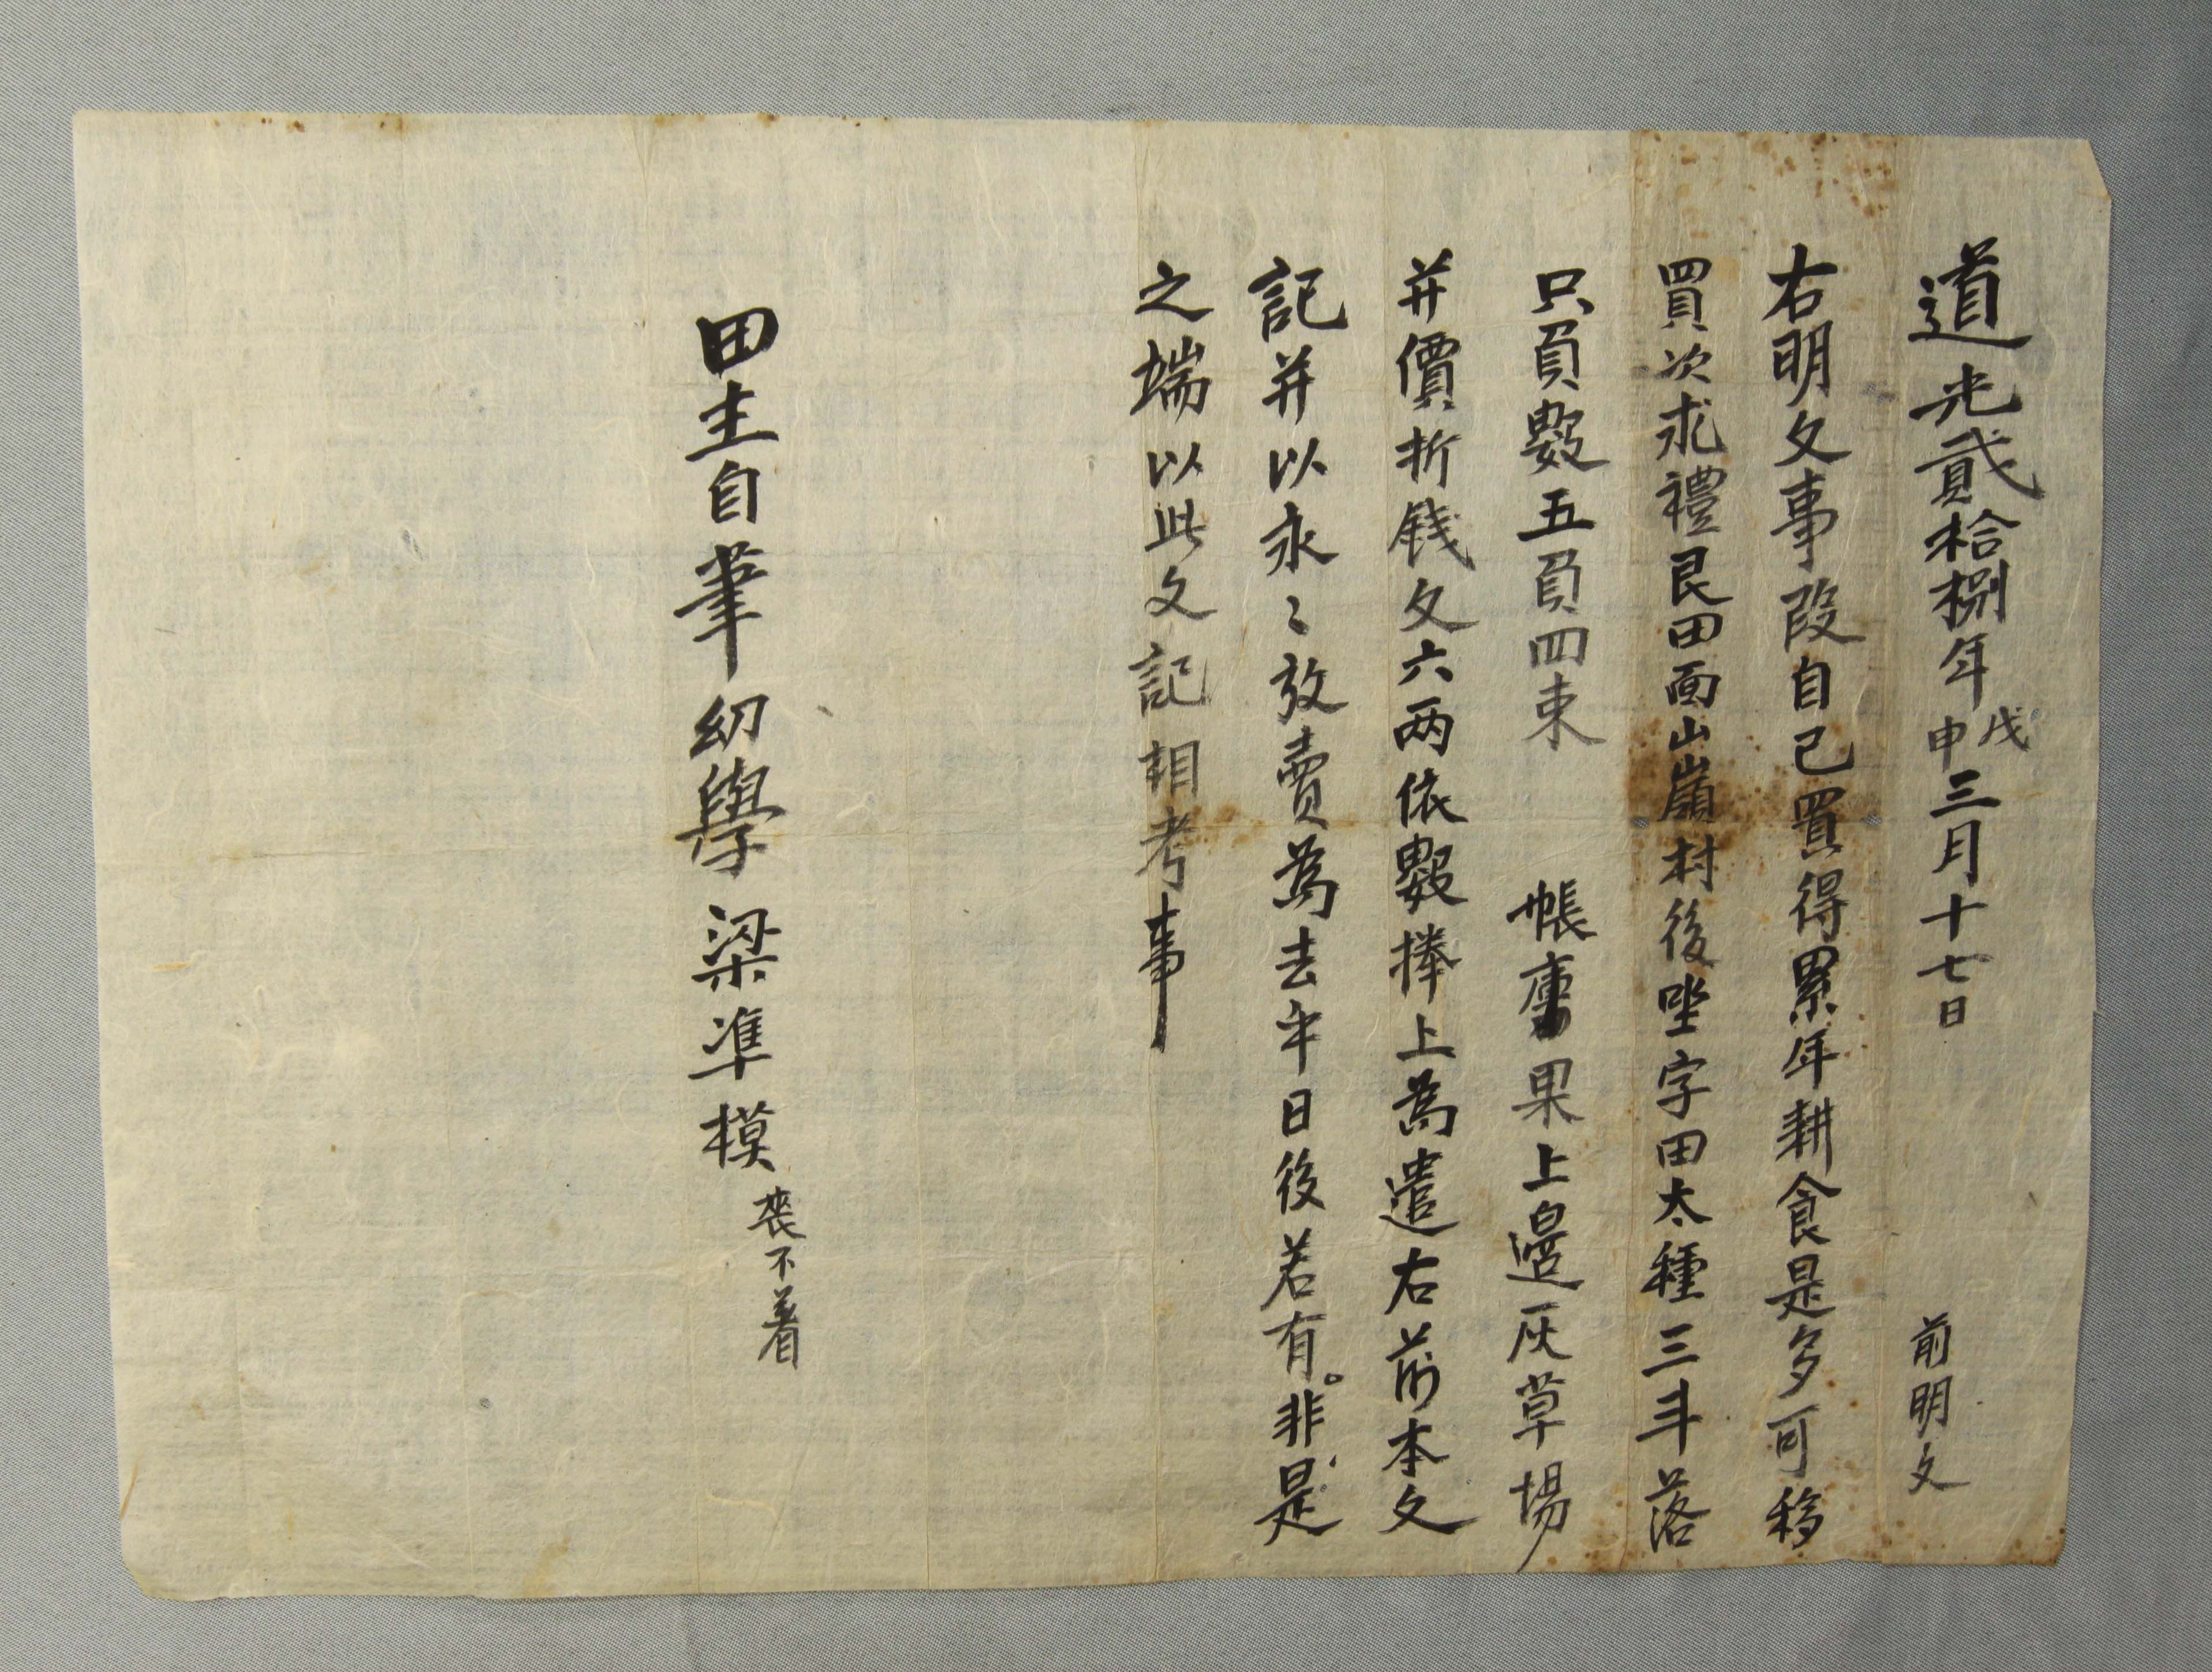 道光貳拾捌年戊申三月十七日 前明文
右明文事段自己買得累年耕食是多可移
買次求禮艮田面山崗村後坐字田太種三斗落
只負數五負四束 帳庫果上邊灰草場
并價折錢文六兩依數捧上爲遣右前本文
記并以永〻放賣爲去乎日後若有非是
之端以此文記相考事
田主自筆幼學 梁準模 喪不着